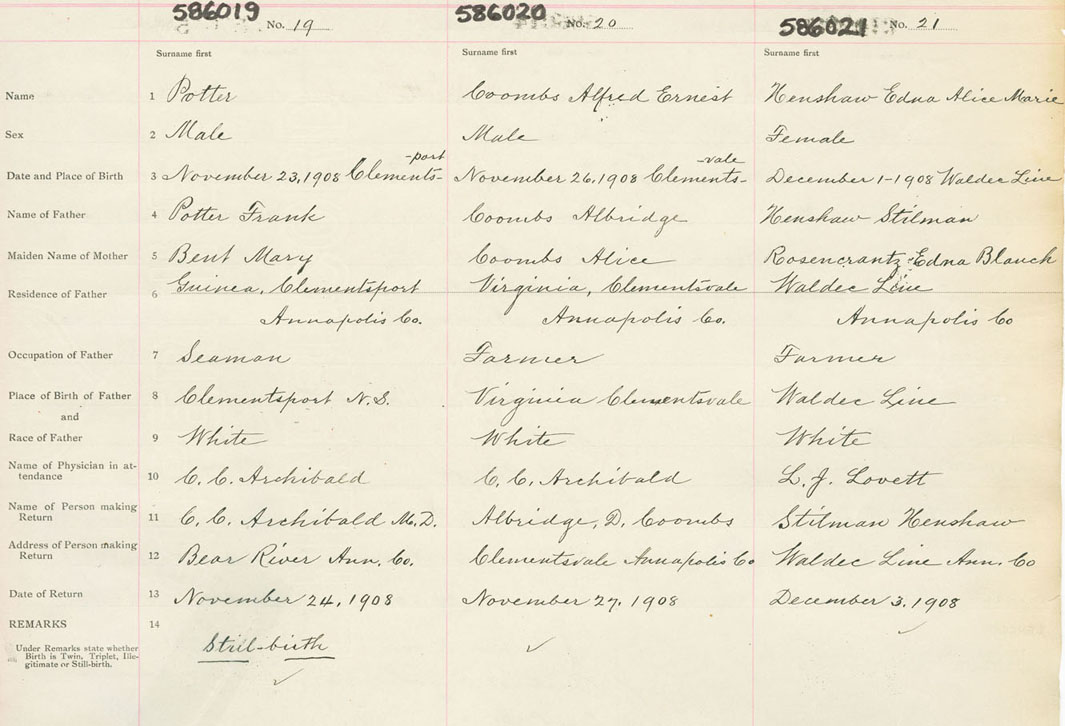 586019 No. 19 586020 No. 20 586021 No. 21
Surname first Surname first Surname first
Name 1 Potter Coombs Alfred Ernest Henshaw Edna Alice Marie
Sex 2 Male Male Female
-port -vale
Date and Place of Birth 3 November 23, 1908 Clements- November 26, 1908 Clements- December 1-1908 Waldec Line
Name of Father 4 Potter Frank Coombs Albridge Henshaw Stilman
Maiden Name of Mother 5 Bent Mary Coombs Alice Rosencrantz Edna Blanch
Residence of Father 6 Guinea, Clementsport Virginia, Clementsvale Waldec Line
Annapolis Co. Annapolis Co. Annapolis Co
Occupation of Father 7 Seaman Farmer Farmer
Place of Birth of Father 8 Clementsport N.S. Virginia Clementsvale Waldec Line
and
Race of Father 9 White White White
Name of Physician in at-
tendance 10 C. C. Archibald C. C. Archibald L. J. Lovett
Name of Person making
Return 11 C. C. Archibald M.D. Albridge, D. Coombs Stilman Henshaw
Address of Person making
Return 12 Bear River Ann. Co. Clementsvale Annapolis Co Waldec Line Ann. Co
Date of Return 13 November 24, 1908 November 27, 1908 December 3, 1908
REMARKS 14
Still-birth
Under Remarks state whether
Birth is Twin, Triplet, Ille-
gitimate or Still-birth.